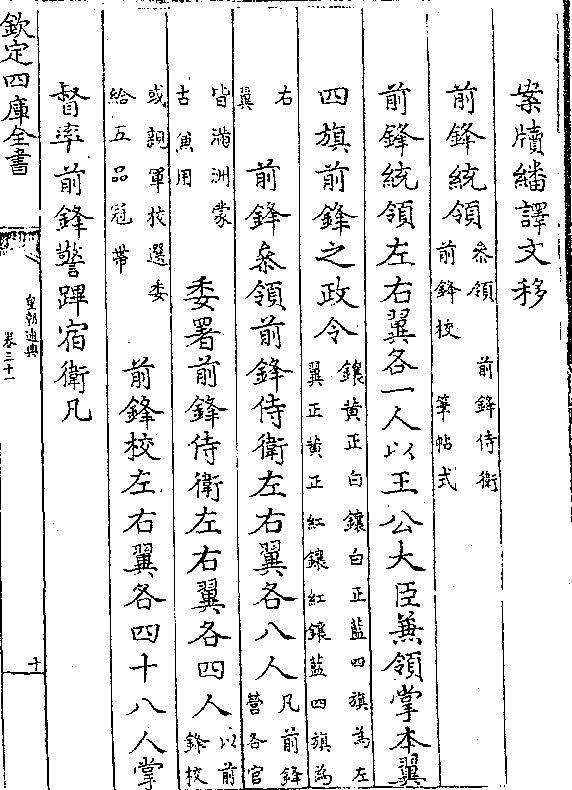 案牘繙譯文移
前鋒統領 叅領 前鋒侍衛
前鋒校 筆帖式
前鋒統領左右翼各一人以王公大臣兼領掌本翼
四旗前鋒之政令 鑲黃正白鑲白正藍四旗為左
翼正黃正紅鑲紅鑲藍四旗為
右
翼 前鋒叅領前鋒侍衛左右翼各八人 凡前鋒
營各官
皆滿洲蒙
古兼用 委署前鋒侍衛左右翼各四人 以前
鋒校
或親軍校選委
給五品冠帶 前鋒校左右翼各四十八人掌
督率前鋒警蹕宿衛凡
欽定四庫全書
皇朝通典
卷三十一
十